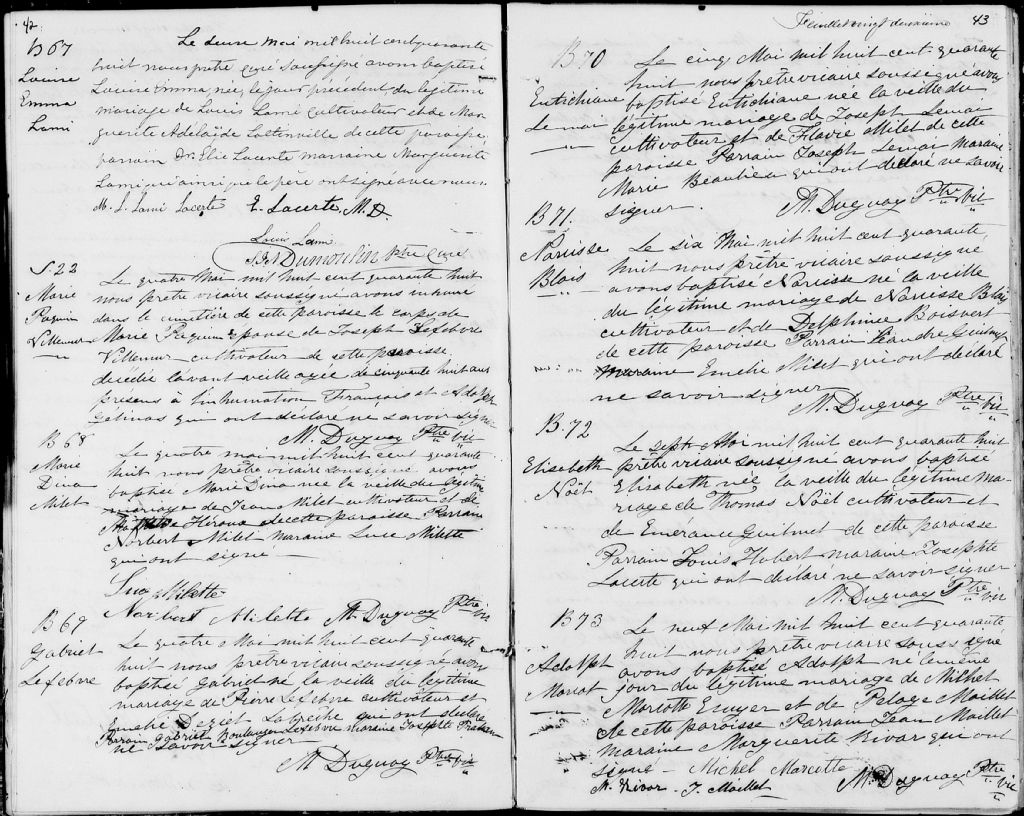 42
B 67
Louise
Emma
Lami
Le deux Mai mil huit cent quarante
huit nous prêtre curé soussigné avons baptisé
Louise Emma, née le jour précédent du légitime
mariage de Louis Lami cultivateur et de Mar
guerite Adelaïde de cette paroisse
parrain Dr. Elie Lacerte marraine Marguerite
Lami qui ainsi que le père ont signé avec nous.
M. L. Lami Lacerte E. Lacerte, M. D.
Louis Lami
Dumoulin Ptre Curé
S. 22
Marie
Paquin
Villemur
Le quatre Mai mil huit cent quarante huit
nous prêtre vicaire soussigné avons inhumé
dans le cimetière de cette paroisse le corps de
Marie Paquin Epouse de Joseph Lefebvre
Villemur cultivateur de cette paroisse
décédée l'avant veille agée de cinquante huit ans
présens à l'inhumation François et Adolph
Gelinas qui ont déclaré ne savoir signer
M. Duguay Ptre Vic
B 68
Marie
Dina
Milet
Le quatre mai mil huit cent quarante
huit nous prêtre vicaire soussigné avons
baptisé Marie Dina née la veille du légitime
mariage de Jean Milet cultivateur et de
Heroux de cette paroisse Parrain
Norbert Milet maraine Luce Milette
qui ont signé —
Luce Milette
Norbert Milette M. Duguay Ptre Vic
B 69
Gabriel
Lefebvre
Le quatre Mai mil huit cent quarante
huit nous prêtre vicaire soussigné avons
baptisé Gabriel né la veille du légitime
mariage de Pierre Lefebvre cultivateur et
Emelie Deziel Labreche qui ont déclaré
Parrain Gabriel Boulanger Lefebvre maraine Josephte
ne savoir signer
M Duguay Ptre Vic
Feuillet vingt deuxième 43
B 70
Eutichiane
Lemai
Le cinq Mai mil huit cent quarante
huit nous prêtre vicaire soussigné avons
baptisé Eutichiane née la veille du
légitime mariage de Joseph Lemai
cultivateur et de Flavie Milet de cette
paroisse Parrain Joseph Lemai maraine
Marie Beaulieu qui ont déclaré ne savoir
signer.
M. Duguay Ptre Vic
B 71.
Narcisse
Blais
Le six Mai mil huit cent quarante
huit nous prêtre vicaire soussigné
avons baptisé Narcisse né la veille
du légitime mariage de Narcisse Blai
cultivateur et de Delphine Boisvert
de cette paroisse Parrain Leandre
maraine Emelie Milet qui ont déclaré
ne savoir signer
M. Duguay Ptre Vic
B 72
Elisabeth
Noël
Le sept Mai mil huit cent quarante huit
prêtre vicaire soussigné avons baptisé
Elisabeth née la veille du légitime ma-
riage de Thomas Noël cultivateur et
de Emérance Guilmet de cette paroisse
Parrain Louis Hubert maraine Josephte
Lacerte qui ont déclaré ne savoir signer
M. Duguay Ptre Vic
B 73
Adolph
Le neuf Mai mil huit cent quarante
huit nous prêtre vicaire soussigné
avons baptisé Adolph né le même
jour du légitime mariage de Michel
Marcotte Ecuyer et de Pelage Maillet
de cette paroisse Parrain Jean Maillet
maraine Marguerite Rivar qui ont
signé — Michel Marcotte
M. Rivar - J. Maillet M. Duguay Ptre Vic